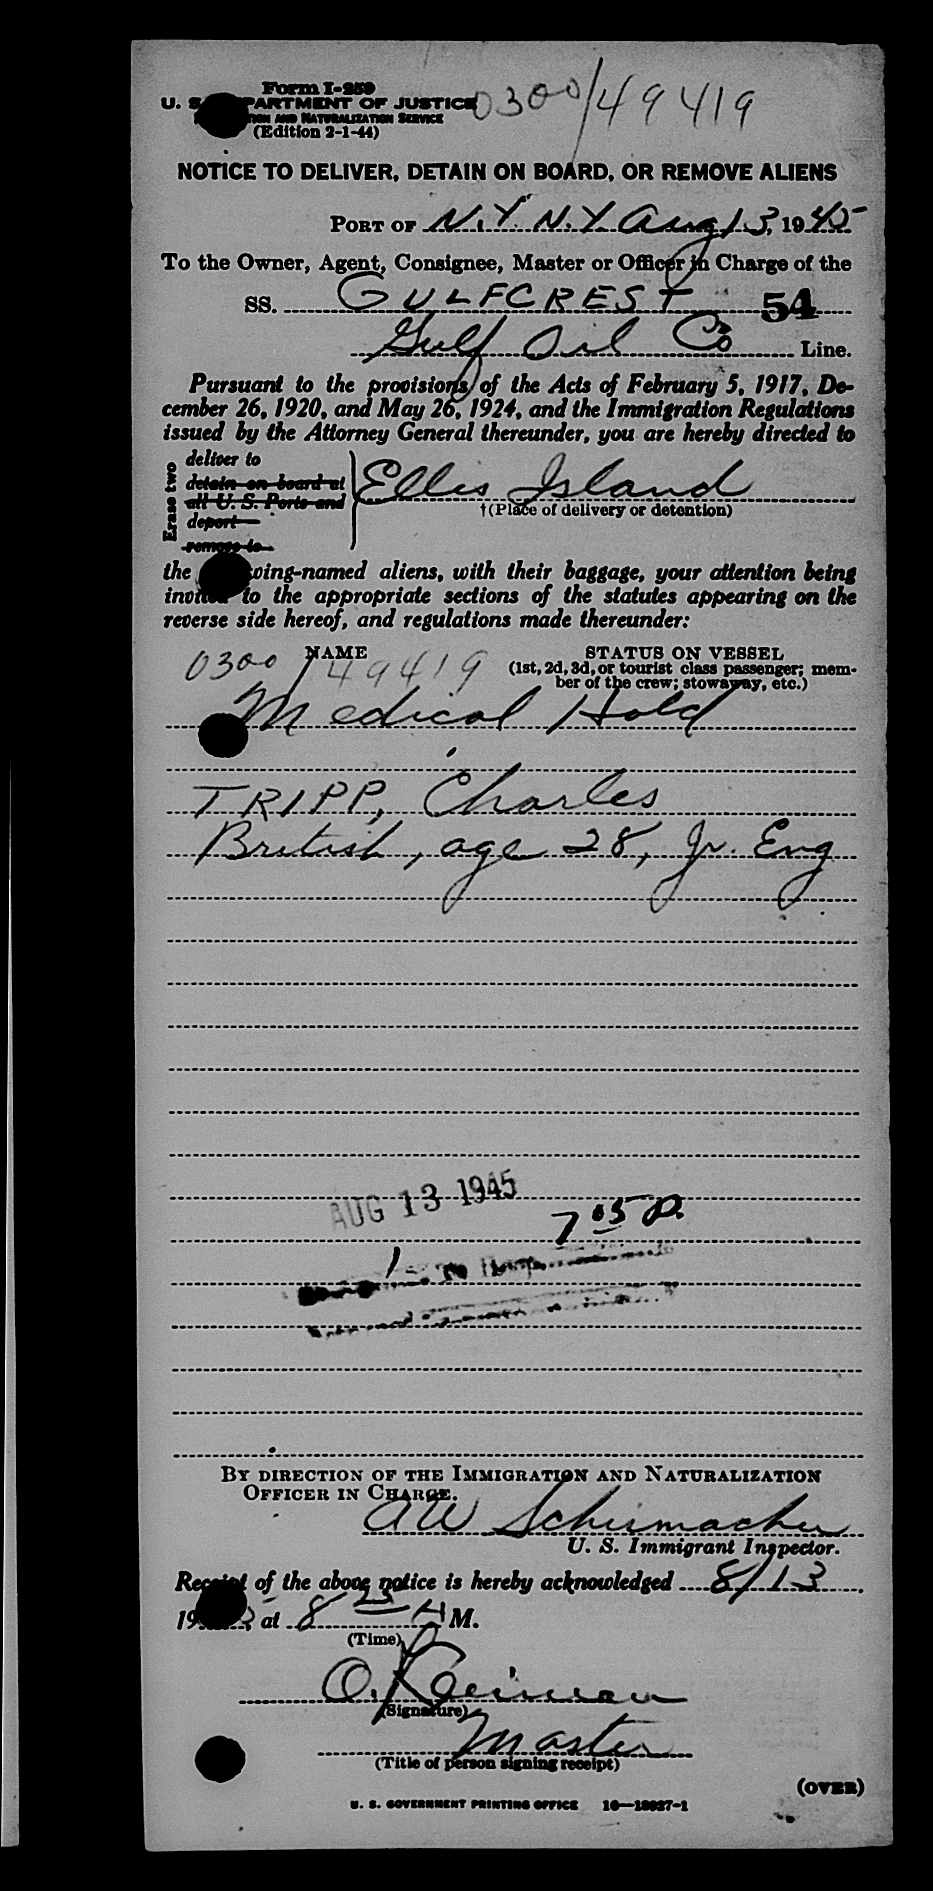 Form I-259
0300/49419
U. S. DEPARTMENT OF JUSTICE
IMMIGRATION AND NATURALIZATION SERVICE
(Edition 2-1-44)
NOTICE TO DELIVER, DETAIN ON BOARD, OR REMOVE ALIENS
PORT OF N.Y. N.Y. Aug 13, 1945
To the Owner, Agent, Consignee, Master or Officer in Charge of the
SS. GULFCREST 54
Gulf Oil Co Line.
Pursuant to the provisions of the Acts of February 5, 1917, De-
cember 26, 1920, and May 26, 1924, and the Immigration Regulations
issued by the Attorney General thereunder, you are hereby directed to
Erase two
deliver to
detain on board at
all U. S. Ports and
deport
remove to
Ellis Island
†(Place of delivery or detention)
the following-named aliens, with their baggage, your attention being
invited to the appropriate sections of the statutes appearing on the
reverse side hereof, and regulations made thereunder:
NAME STATUS ON VESSEL
0300/49419 (1st, 2d, 3d, or tourist class passenger; mem-
ber of the crew; stowaway, etc.)
Medical Hold
TRIPP, Charles
British, age 28, Jr. Eng
AUG 13 1945
7 05 P.
1
BY DIRECTION OF THE IMMIGRATION AND NATURALIZATION
OFFICER IN CHARGE.
AW Schumacher
U. S. Immigrant Inspector.
Receipt of the above notice is hereby acknowledged 8/13
19 at 8 M.
(Time)
O.
(Signature)
Master
(Title of person signing receipt)
(OVER)
U. S. GOVERNMENT PRINTING OFFICE 16—18027-1